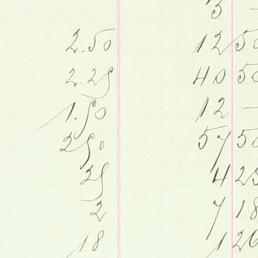 3 —
2.50 12 50
2.25 40 50
1.50 12 —
2 50 57 50
25 4 25
2 7 18
18 1 26